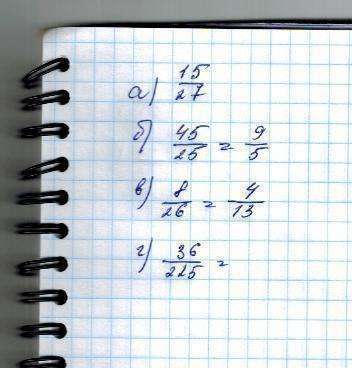 а) 15/27
б) 45/25 = 9/5
в) 8/26 = 4/13
г) 36/225 =